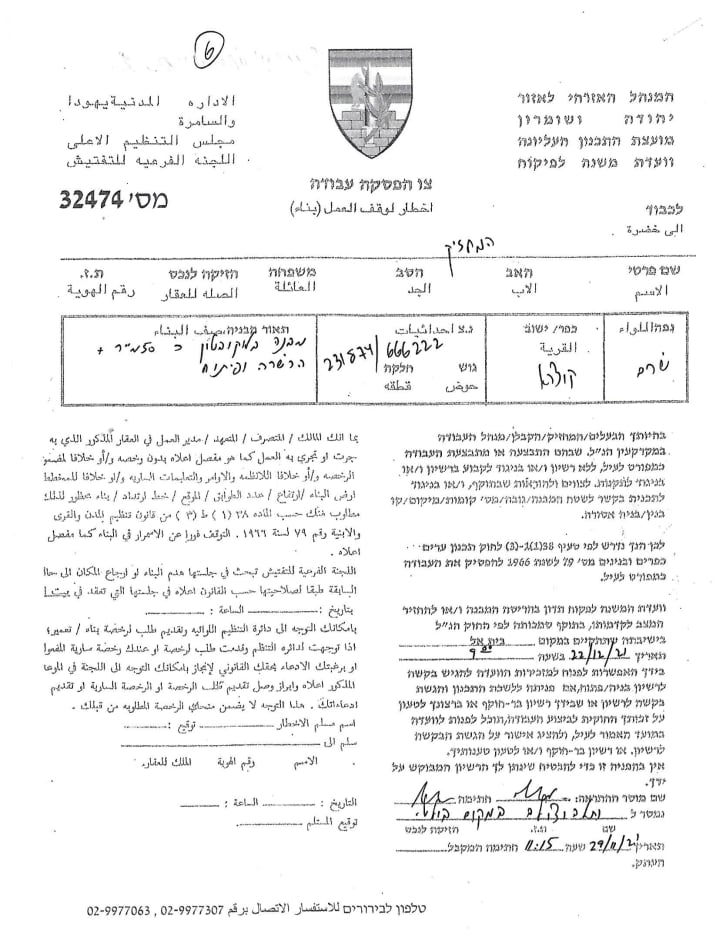 6
המנהל האזרחי לאזור
יהודה ושומרון
מועצת התכנון העליונה
וועדת משנה לפיקוח
الاداره المدنية يهودا
والسامرة
مجلس التنظيم الاعلى
اللجنه الفرعيه للتفتيش
צו הפסקת עבודה
اخطار لوقف العمل (بناء)
מס' 32474
לכבוד
الى حضرة
המחזיק
שם פרטי האב הסב משפחה הזיקה לנכס ת.ז.
الاسم الاب الجد العائلة الصله للعقار رقم الهوية
נפה/הלואء
כפר/ ישוב
القرية
קוצרא
נ.צ احداثيات
231874/666222
גוש חלקה
حوض قطعه
תאור מבניה/وصف البناء
מבנה כ 50 מ"ר +
הכשרה ופיתוח
בהיותך הבעלים/המחזיק/הקבלן/מנהל העבודה
במקרקעין הנ"ל, שבהם התבצעה או מתבצעת העבודה
כמפורט לעיל, ללא רשיון ו/או בניגוד לקבוע ברשיון ו/או
בניגוד לתקנות, לצווים ולהוראות שבתוקף, ו/או בניגוד
לתכנית בקשר לשטח המבנה/גובה/מס' קומות/מיקום/קו
בנין/בניה אסורה.
לכן הנך נדרש לפי סעיף 38(1)(ב) לחוק תכנון ערים
כפרים ובנינים מס' 79 לשנת 1966 להפסיק את העבודה
כמפורט לעיל.
וועדת המשנה לפקוח תדון בהריסת המבנה ו/או להחזיר
המצב לקדמותו, בתוקף סמכותה לפי החוק הנ"ל
בישיבתה שתתקיים במקום בית אל
תאריך 22/12/21 בשעה 9:00
בידך האפשרות לפנות למזכירות הוועדה להגיש בקשה
לרשיון בניה/פתוח, אם פניתה ללשכת התכנון והגשת
בקשה לרשיון או שבידך רשיון בר-תוקף או ברצונך לטעון
על זכותך החוקית לביצוע העבודה, תוכל לפנות לוועדה
במועד האמור לעיל, ולהציג אישור על הגשת הבקשה
לרשיון, או רשיון בר-תוקף ו/או לטעון טענותיך.
אין בהפניה זו כדי להבטיח שינתן לך הרשיון המבוקש על
ידך.
שם מוסר ההתראה: חתימה
נמסר ל במקום
שם ת.ז. הזיקה לנכס
תאריך 29/11/21 שעה 11:15 חתימת המקבל
העתק:
بما انك المالك / المتصرف / المتعهد / مدير العمل في العقار المذكور الذي به
جرت او تجري به العمل كما هو مفصل اعلاه بدون رخصه و/أو خلافا لمضمو
الرخصه و/أو خلافا للانظمه والاوامر والتعليمات الساريه و/او خلافا للمخطط
ارض البناء /ارتفاع / عدد الطوابق / الموقع / خط ارتداد / بناء محظور لذلك
مطلوب منك حسب الماده ٣٨ (١) ط (٣) من قانون تنظيم المدن والقرى
والابنية رقم ٧٩ لسنة ١٩٦٦، التوقف فورا عن الاسمرار في البناء كما مفصل
اعلاه .
اللجنة الفرعية للتفتيش تبحث في جلستها هدم البناء او ارجاع المكان الى حاا
السابقة طبقا لصلاحيتها حسب القانون اعلاه في جلستها التي تعقد في
بتاريخ: الساعة :
بامكانك التوجه الى دائرة التنظيم اللوائيه وتقديم طلب لرخصة بناء / تعمير؛
اذا توجهت لدائره التنظيم وقدمت طلب لرخصة او عندك رخصة سارية المفعوا
او برغبتك الادعاء بحقك القانوني لإنجاز بامكانك التوجه الى اللجنة في الموعا
المذكور اعلاه وابراز وصل تقديم طلب الرخصة او الرخصة السارية او تقديم
ادعاءاتك . هذا التوجه لا يضمن منحك الرخصة المطلوبه من قبلك .
اسم مسلم الاخطار توقيع :
سلم الى
الاسم رقم الهوية المالك للعقار.
التاريخ : الساعة :
توقيع المستلم
טלפון לבירורים للاستفسار الاتصال برقم 02-9977307 , 02-9977063